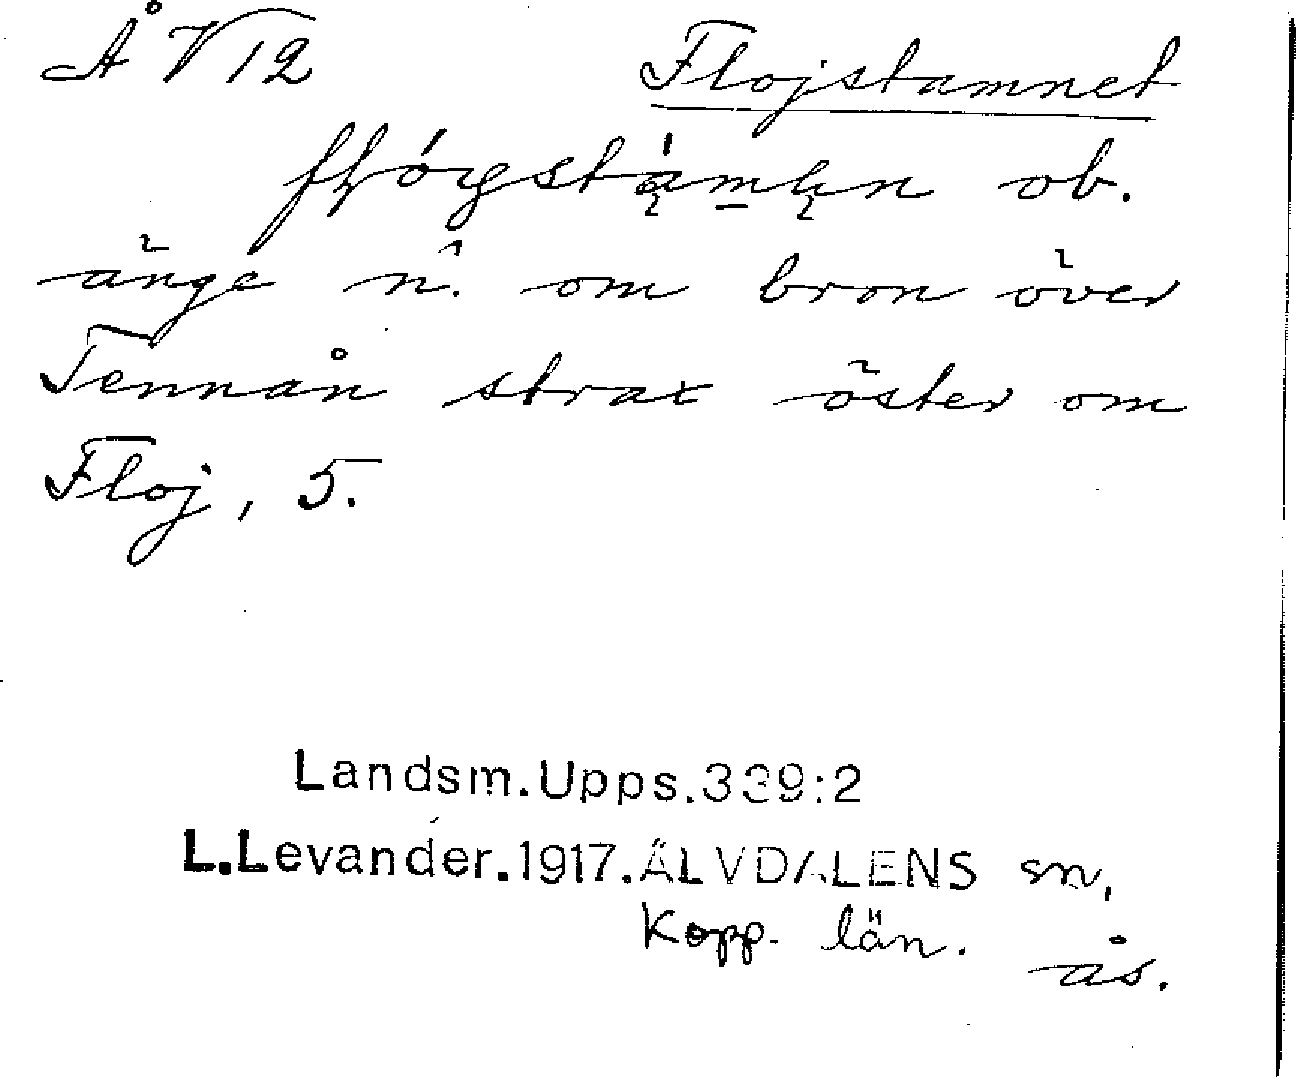 Å V 12
Flojstamnet
ob.
änge n. om bron över
Tennån strax öster om
Floj, 5.
Landsm.Upps.339:2
L.Levander.1917.ÄLVDALENS sn,
Kopp. län.
ås.